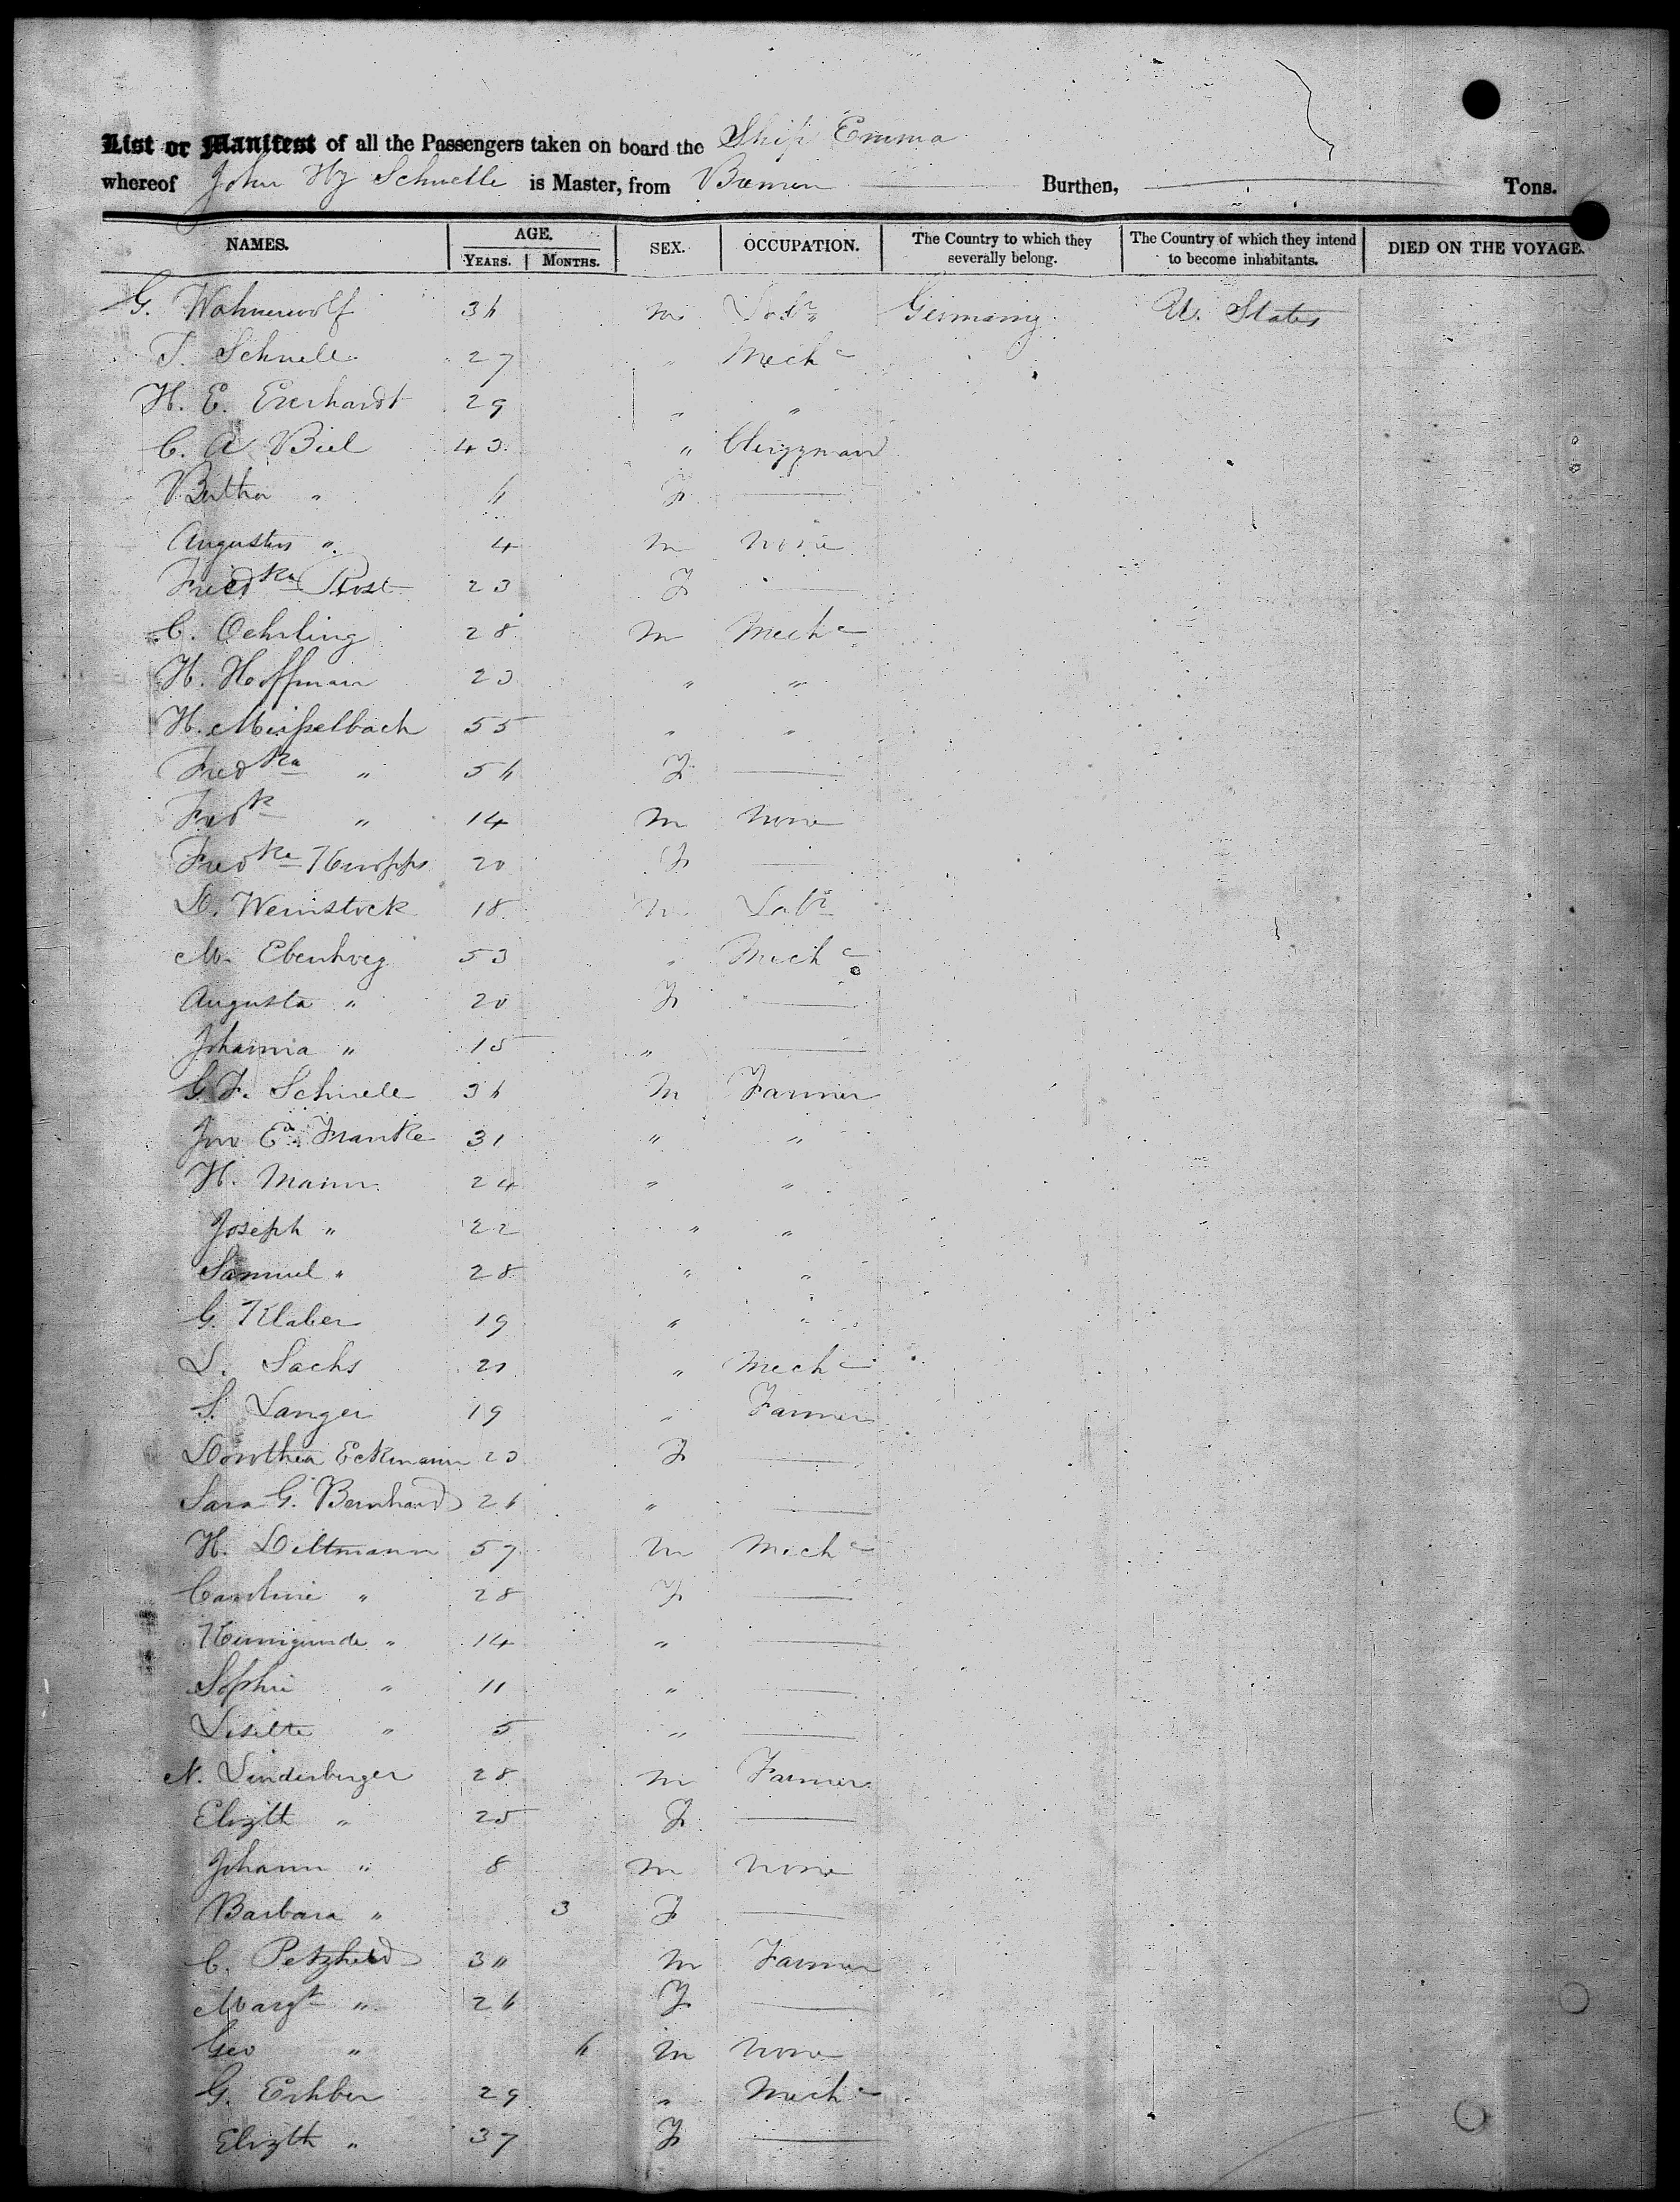 List or Manifest of all the Passengers taken on board the Ship Emma
whereof John Hy Schnelle is Master, from Bremen Burthen, Tons.
NAMES. AGE. SEX. OCCUPATION. The Country to which they severally belong. The Country of which they intend to become inhabitants. DIED ON THE VOYAGE.
YEARS. MONTHS.
G. Wahnerwolf 36 m Labr Germany U. States
T. Schnell 27 " Mechc
H. E. Everhardt 29 " "
C. A Biel 43 " Clergyman
Bertha " 6 F
Augustus " 4 m none
Friedka Rost 23 F
C. Oehrling 28 m Mechc
H. Hoffman 23 " "
H. Meisselbach 55 " "
Fredka " 56 F
Fredk " 14 m none
Fredke Knopps 20 F
D. Weinstock 18 m Labr
M. Ebenhveg 53 " Mechc
Augusta " 20 F
Johanna " 15 "
G. F. Schnell 36 m Farmer
Jno Ed. Franke 31 " "
H. Mann 24 " "
Joseph " 22 " "
Samuel " 28 " "
G. Klaber 19 " "
L. Sachs 21 " Mechc
S. Langer 19 " Farmer
Dorothea Eckmann 23 F
Sara G. Bernhard 26 "
H. Dittmann 57 m Mechc
Caroline " 28 F
Kunigunde " 14 "
Sophie " 11 "
Lisette " 5 "
N. Linderberger 28 m Farmer
Elizth " 25 F
Johann " 8 m none
Barbara " 3 F
C. Petzhold 34 m Farmer
Margt " 26 F
Geo " 6 m none
G. Eshber 29 " Mechc
Elizth " 37 F